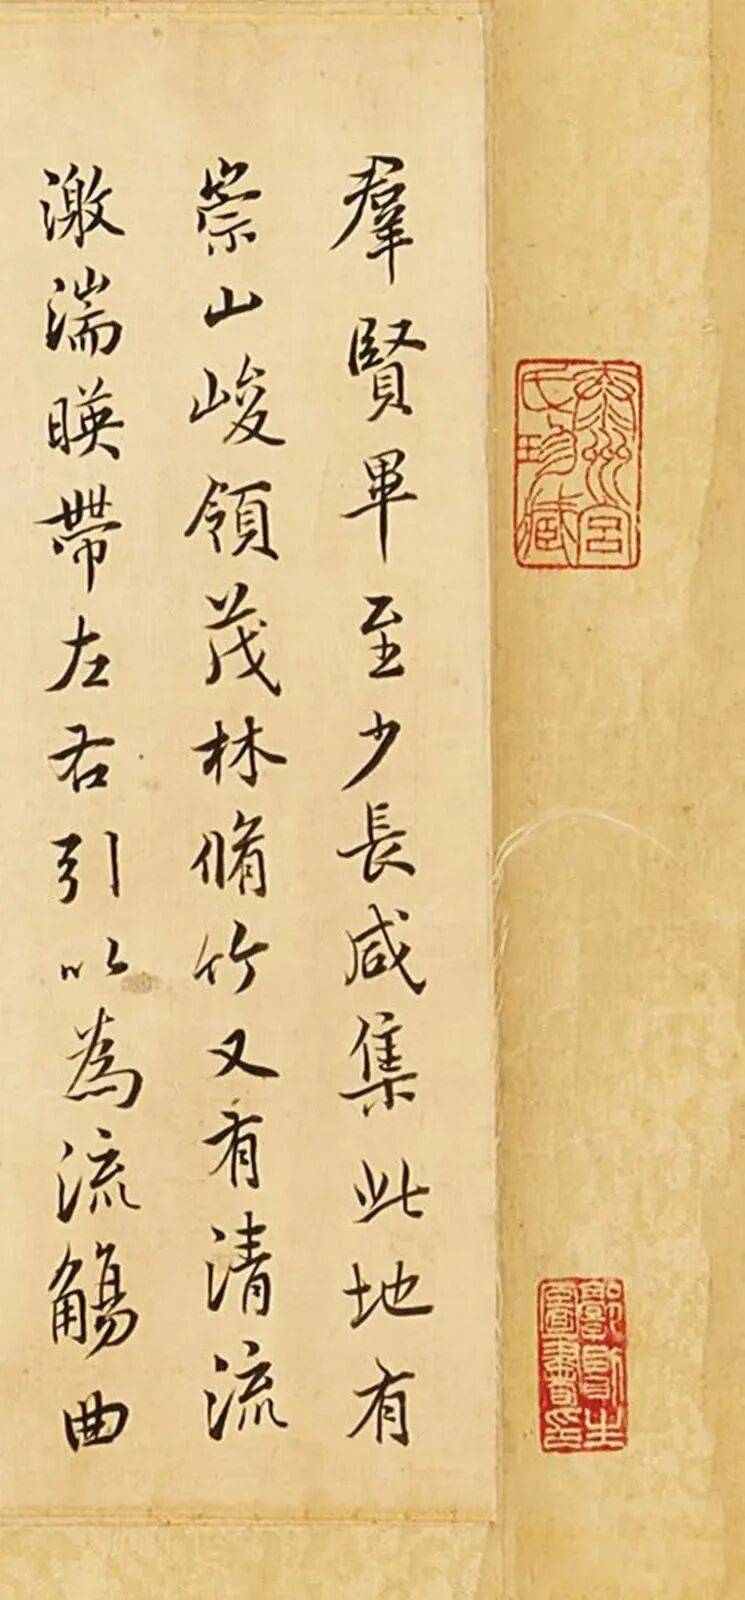 羣賢畢至少長咸集此地有
崇山峻領茂林脩竹又有清流
激湍暎帶左右引以為流觴曲
泰州宮氏珍藏